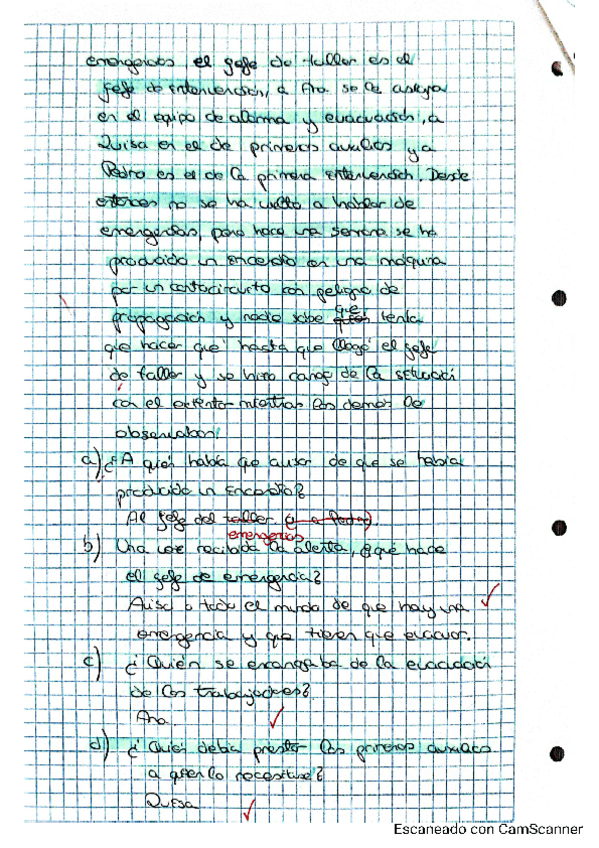 emergencias el gefe de taller es el
gefe de intervención, a Ana se la asigna
en el equipo de alarma y evacuación, a
Quisa en el de primeros auxilios y a
Pedro en el de la primera intervención. Desde
entonces no se ha vuelto a hablar de
emergencias, pero hace una semana se ha
producido un incendio en una máquina
por un cortocircuito con peligro de
propagación y nadie sabe que tenía
que hacer que hasta que llegó el gefe
de taller y se hizo cargo de la situaci
con el extintor mientras los demás le
observaban.
a) ¿A quién había que avisar de que se había
producido un incendio?
Al gefe del taller (y a Pedro).
emergencias
b) Una vez recibida la alerta, ¿qué hace
el gefe de emergencia?
Avisa a todo el mundo de que hay una
emergencia y que tienen que evacuar.
c) ¿Quién se encargaba de la evacuaci
de los trabajadores?
Ana
d) ¿Quién debía prestar los primeros auxilios
a quien lo necesitase?
Quisa
Escaneado con CamScanner